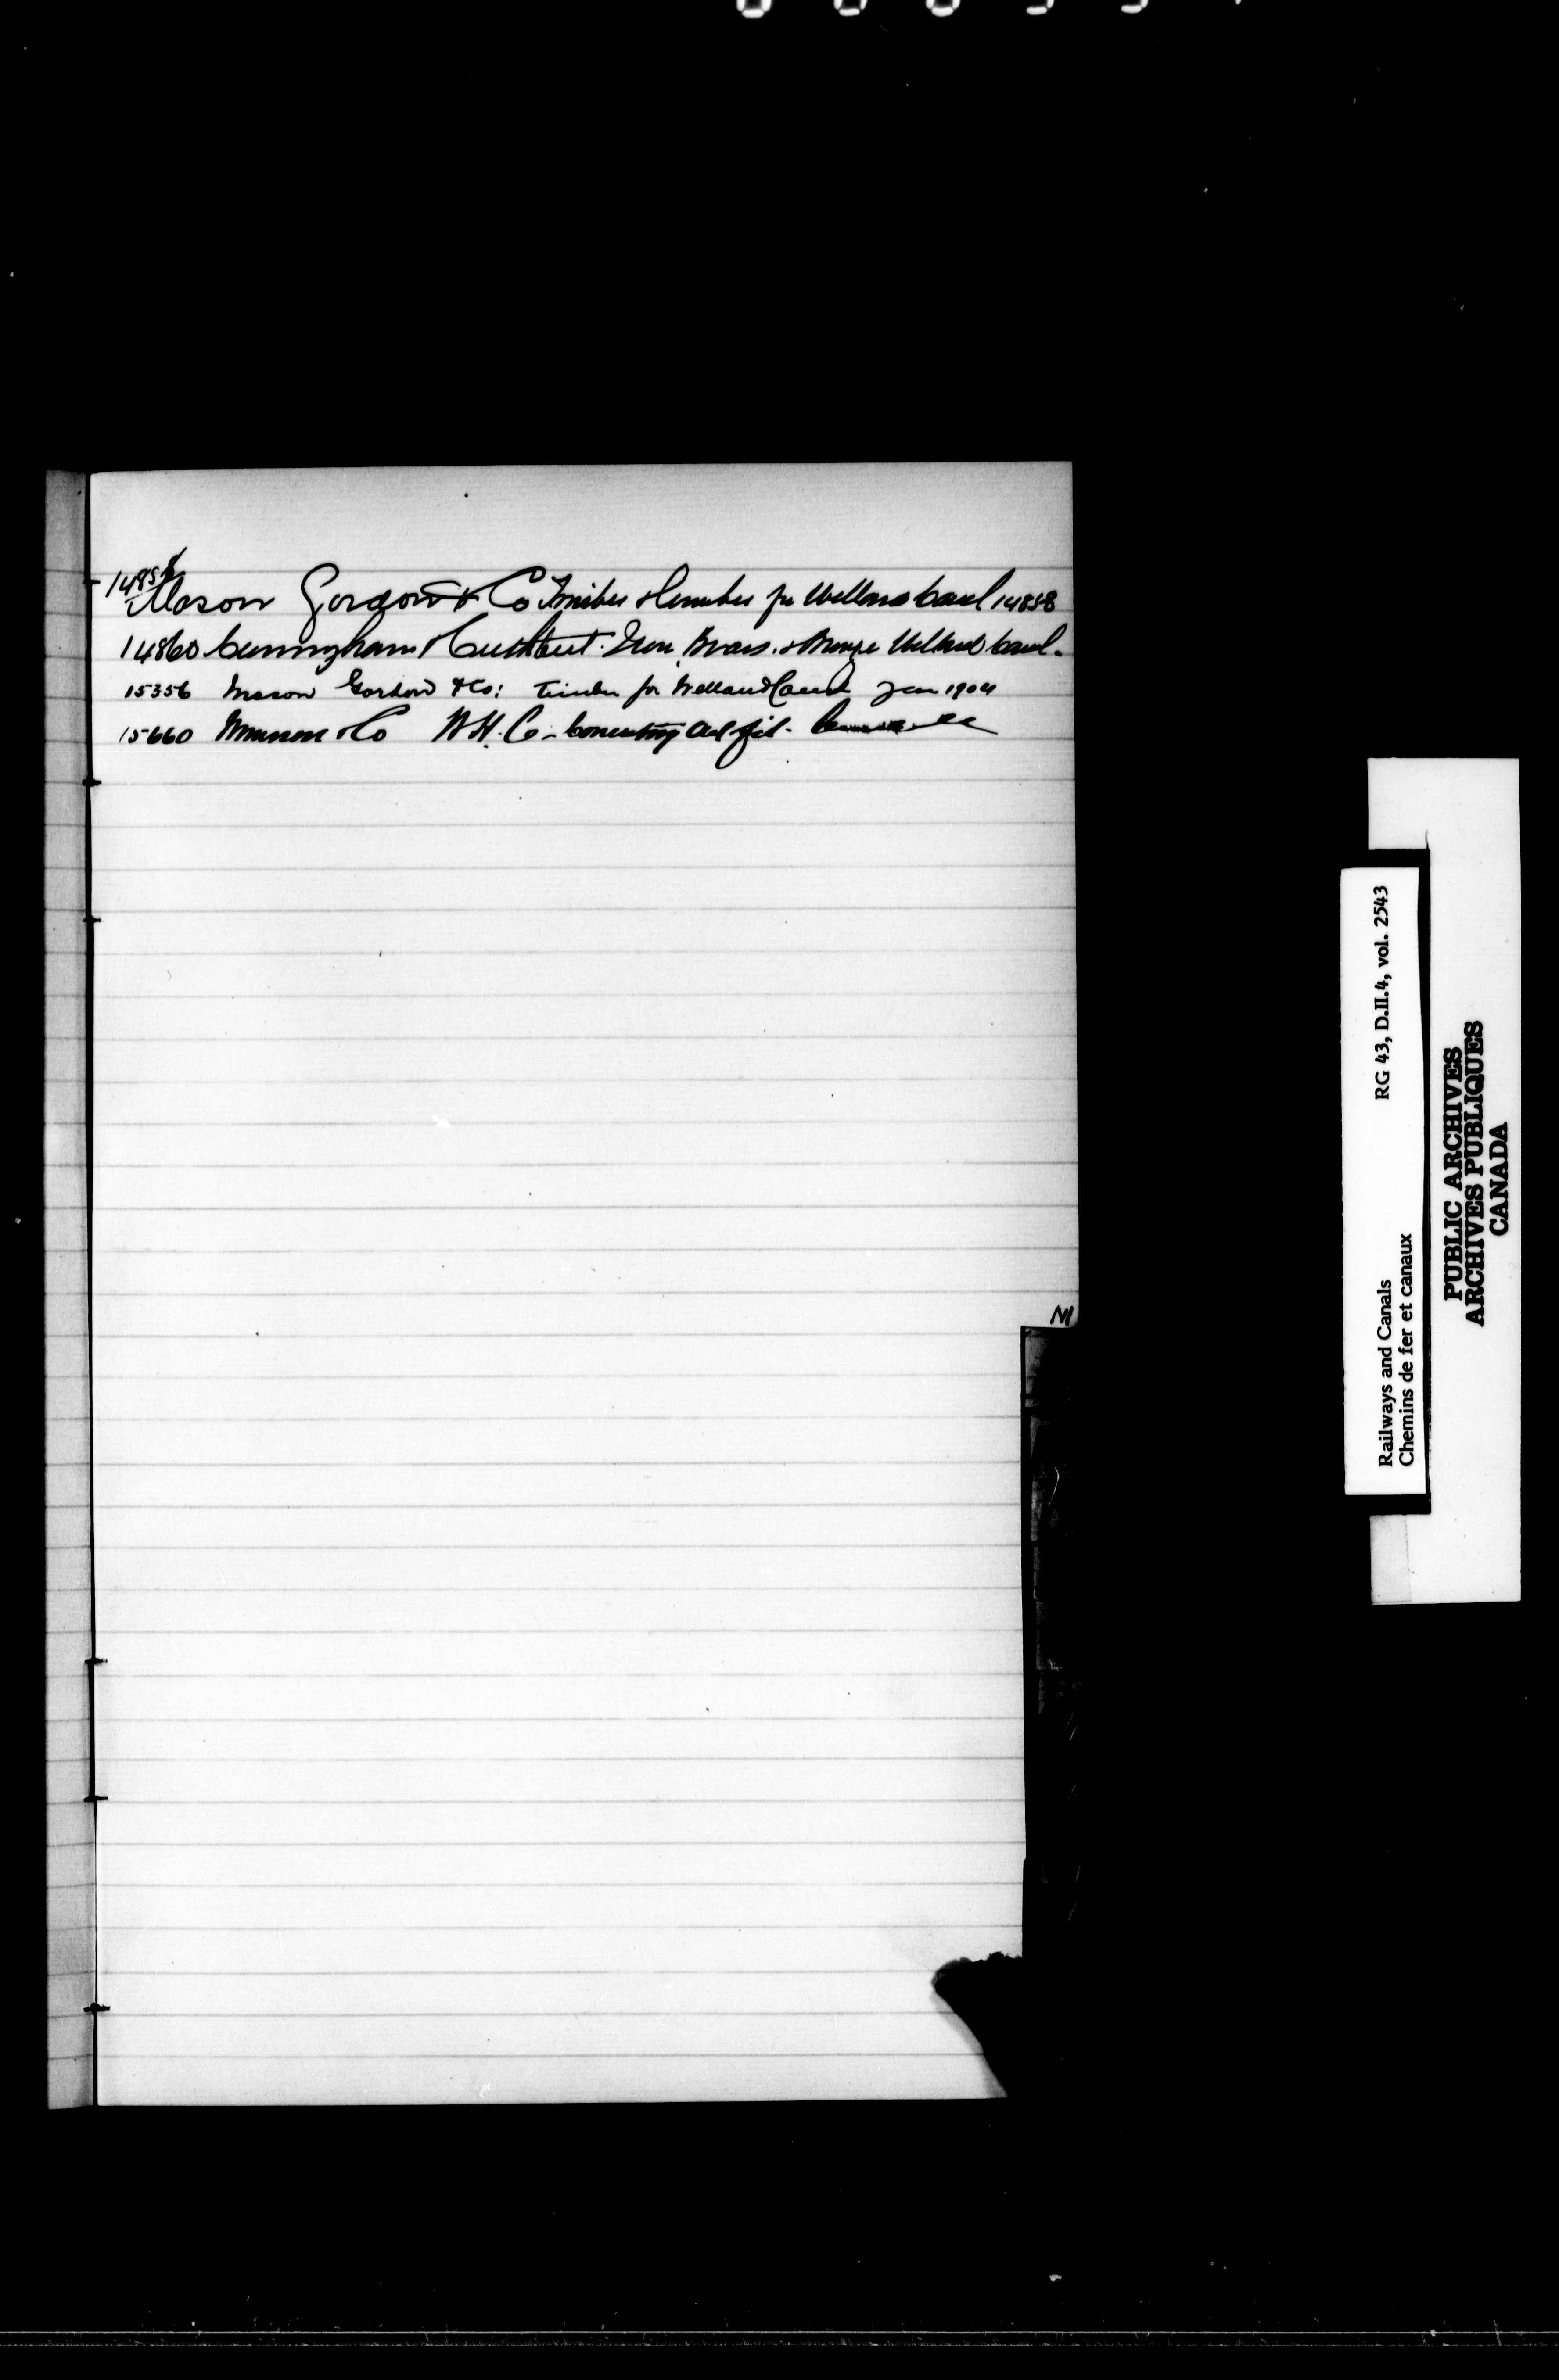 14858
Mason Gordon & Co Timber & Lumber for Welland Canal 14858
14860 Cunningham & Cuthbert. Iron, Brass, & Bronze Welland Canal.
15356 Mason Gordon & Co: Timber for Welland Canal year 1904
15660 & Co W.H. Co - Concreting Outfit.
M
RG 43, D.II.4, vol. 2543
Railways and Canals
Chemins de fer et canaux
PUBLIC ARCHIVES
ARCHIVES PUBLIQUES
CANADA